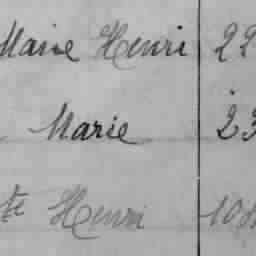 Marie Henri 22
Marie 23
te Henri 10